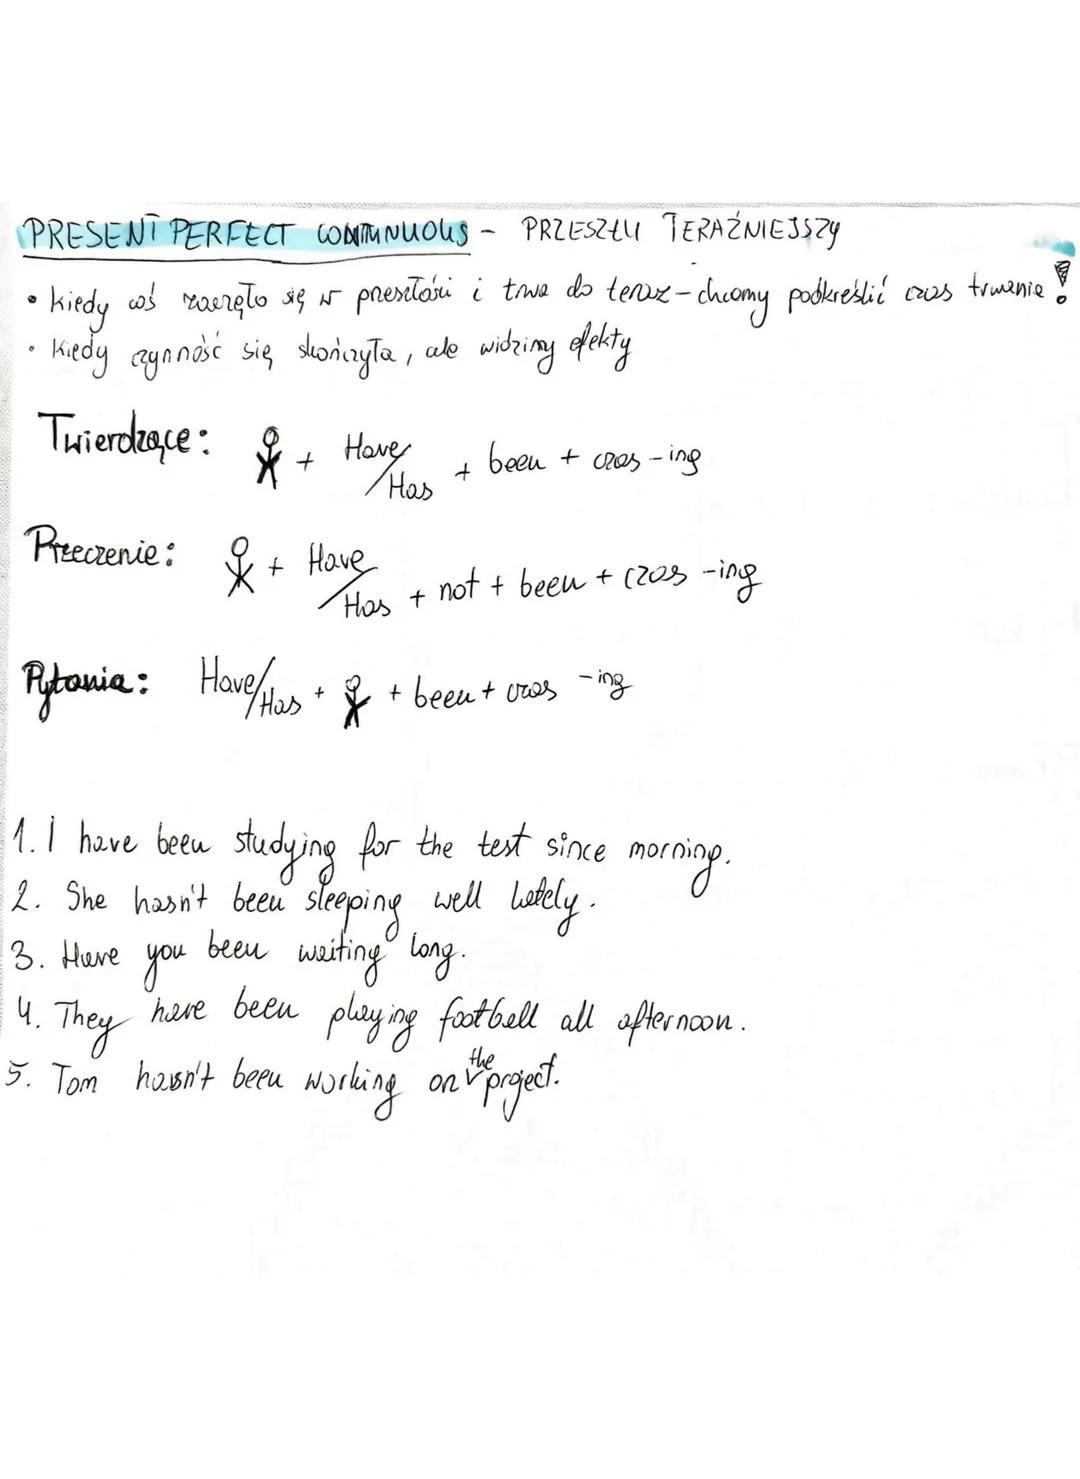 PRESENT PERFECT CONTINUOUS - PRZESZŁY TERAŹNIEJSZY
• kiedy coś zaczęło się w przeszłości i trwa do teraz - chcemy podkreślić czas trwania!
• kiedy czynność się skończyła, ale widzimy efekty
Twierdzące: + Have/Has + been + czas -ing
Przeczenie: + Have/Has + not + been + czas -ing
Pytania: Have/Has + + been + czas -ing
1. I have been studying for the test since morning.
2. She hasn't been sleeping well lately.
3. Have you been waiting long.
4. They have been playing football all afternoon.
5. Tom hasn't been working on the project.